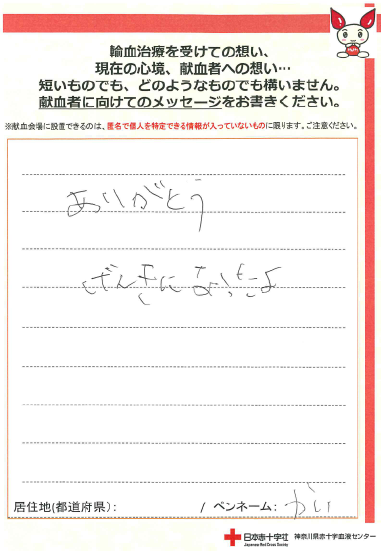 輸血治療を受けての想い、
現在の心境、献血者への想い…
短いものでも、どのようなものでも構いません。
献血者に向けてのメッセージをお書きください。
※献血会場に設置できるのは、匿名で個人を特定できる情報が入っていないものに限ります。ご注意ください。
ありがとう
げんきになったよ
居住地(都道府県)： / ペンネーム： かい
日本赤十字社 神奈川県赤十字血液センター
Japanese Red Cross Society